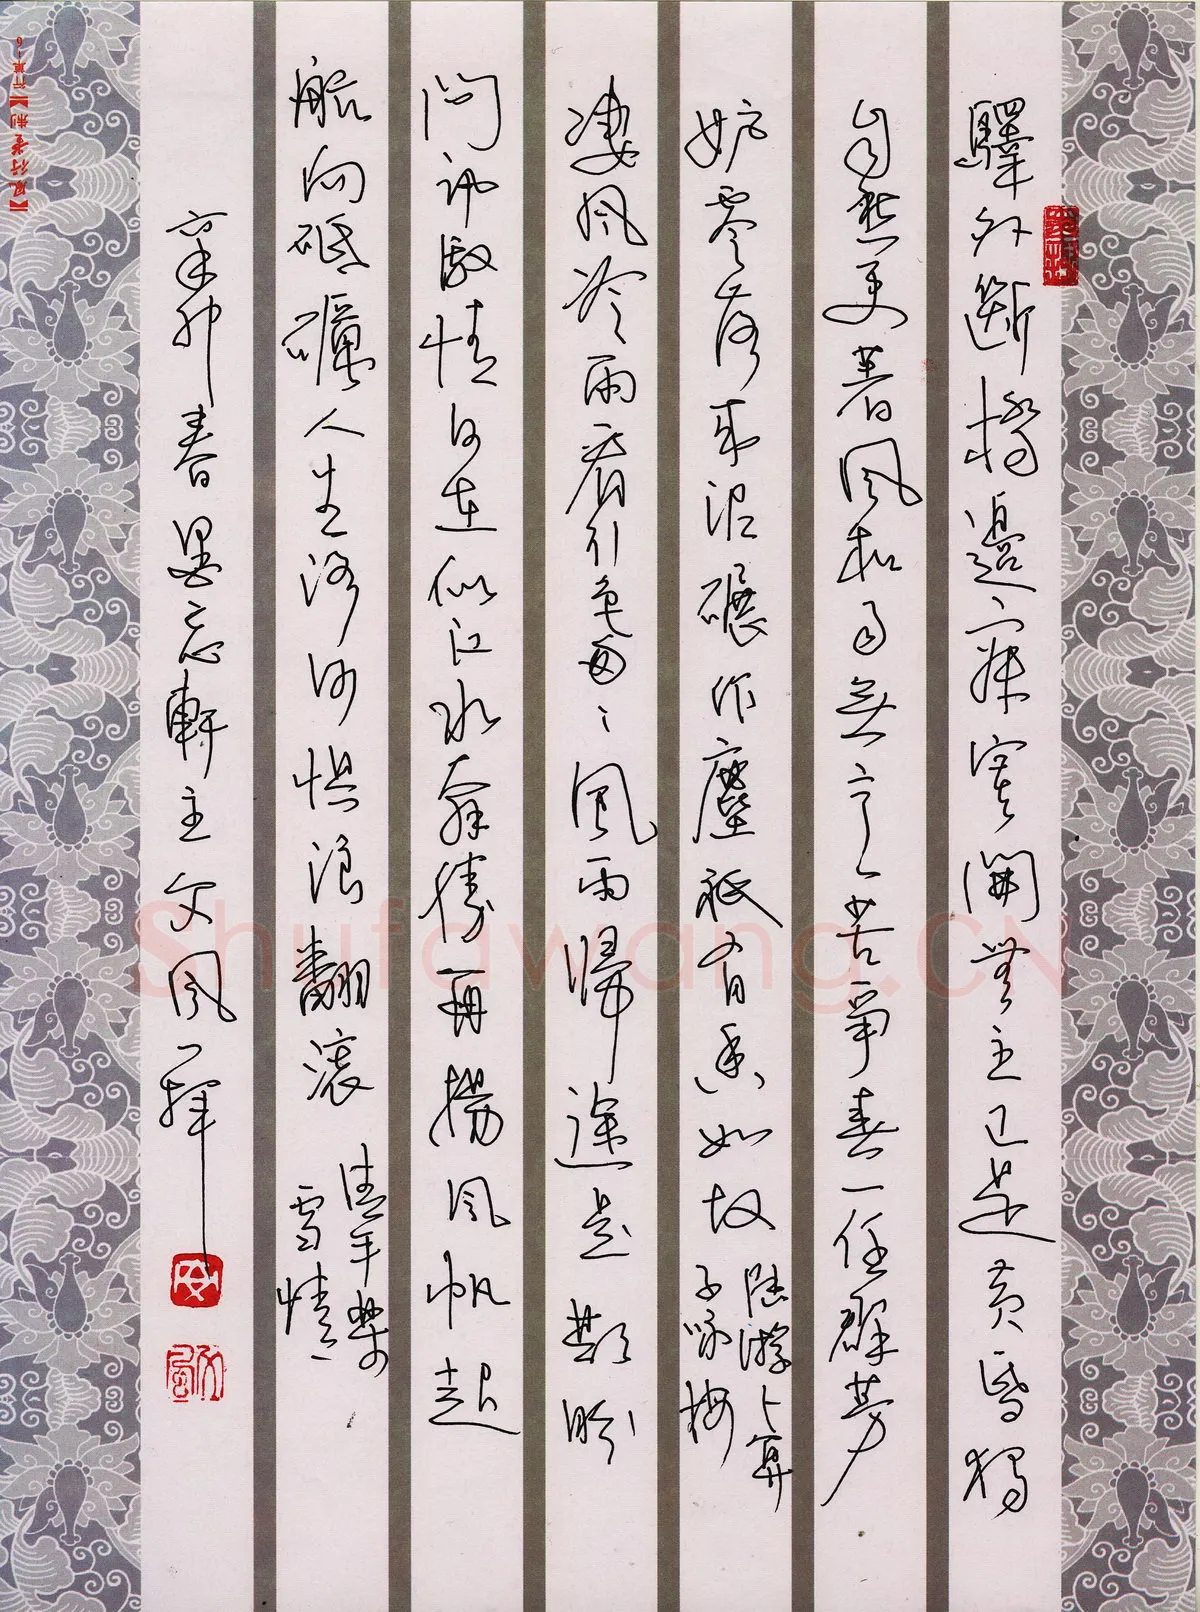 驛外斷橋邊寂寞開無主已是黃昏獨
自愁更著風和雨無意苦爭春一任群芳
妒零落成泥碾作塵祇有香如故
陸游卜算
子咏梅
淒風冷雨風雨歸途是盼
問訊情何在似江水奔騰再揚風帆起
航向砥礪人生路何懼浪翻滾
清平樂
雪情
辛卯春墨忘軒主文風一揮
Shufawang.CN